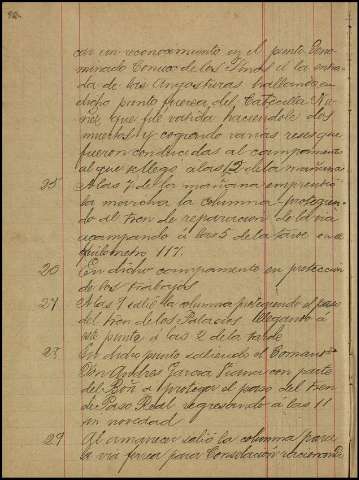 car un reconocimiento en el punto deno-
minado Conuco de los Pinos á la entra-
da de las Angosturas hallando en
dicho punto fuerza del Cabecilla Nu-
ñez que fué batida haciendole dos
muertos y cogiendo varias reses que
fueron conducidas al campamento
al que se llegó á las 12 de la mañana
25 A las 7 de la mañana emprendió
la marcha la columna protegien-
do el tren de reparacion de la via
acampando á las 5 de la tarde en el
kilómetro 117.
26 En dicho campamento en proteccion
de los trabajos
27 A las 7 salió la columna protegiendo el paso
del tren de los Palacios llegando á
este punto á las 2 de la tarde
28 En dicho punto saliendo el Comand
Don Andres Garcia con parte
del Bon á proteger el paso del tren
de Paso Real regresando á las 11
sin novedad
29 Al amanecer salió la columna para
la via ferrea para Consolación